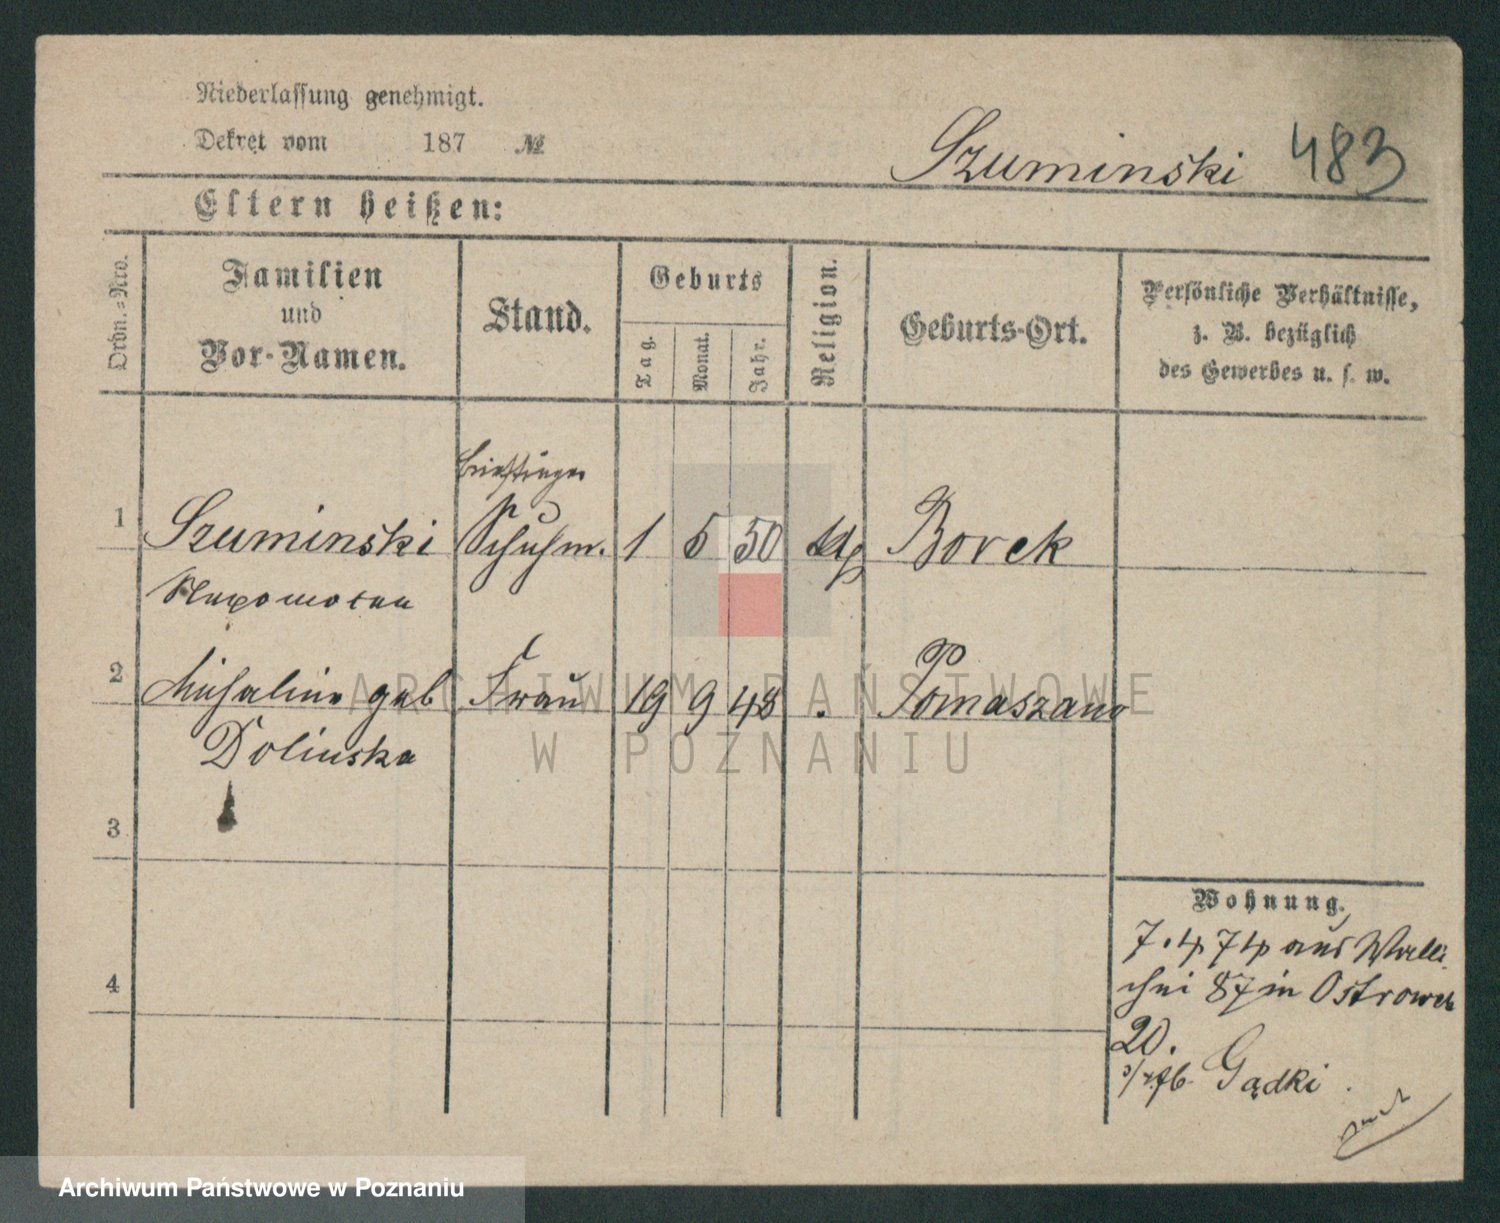 Niederlassung genehmigt.
Dekret vom 187 №
Szuminski 483
Eltern heißen:
Ordn.=Nro.
Familien
und
Vor-Namen.
Stand.
Geburts
Tag.
Monat.
Jahr.
Religion.
Geburts-Ort.
Persönliche Verhältnisse,
z. B. bezüglich
des Gewerbes u. s. w.
1 Szuminski Schuhm. 1 5 50 Borek
2 geb Frau 19 9 48 Pomaszano
Dolinska
3
4
Wohnung.
7.4 74 aus
87 in Ostrowek
20.
Gądki
ARCHIWUM PAŃSTWOWE
W POZNANIU
Archiwum Państwowe w Poznaniu